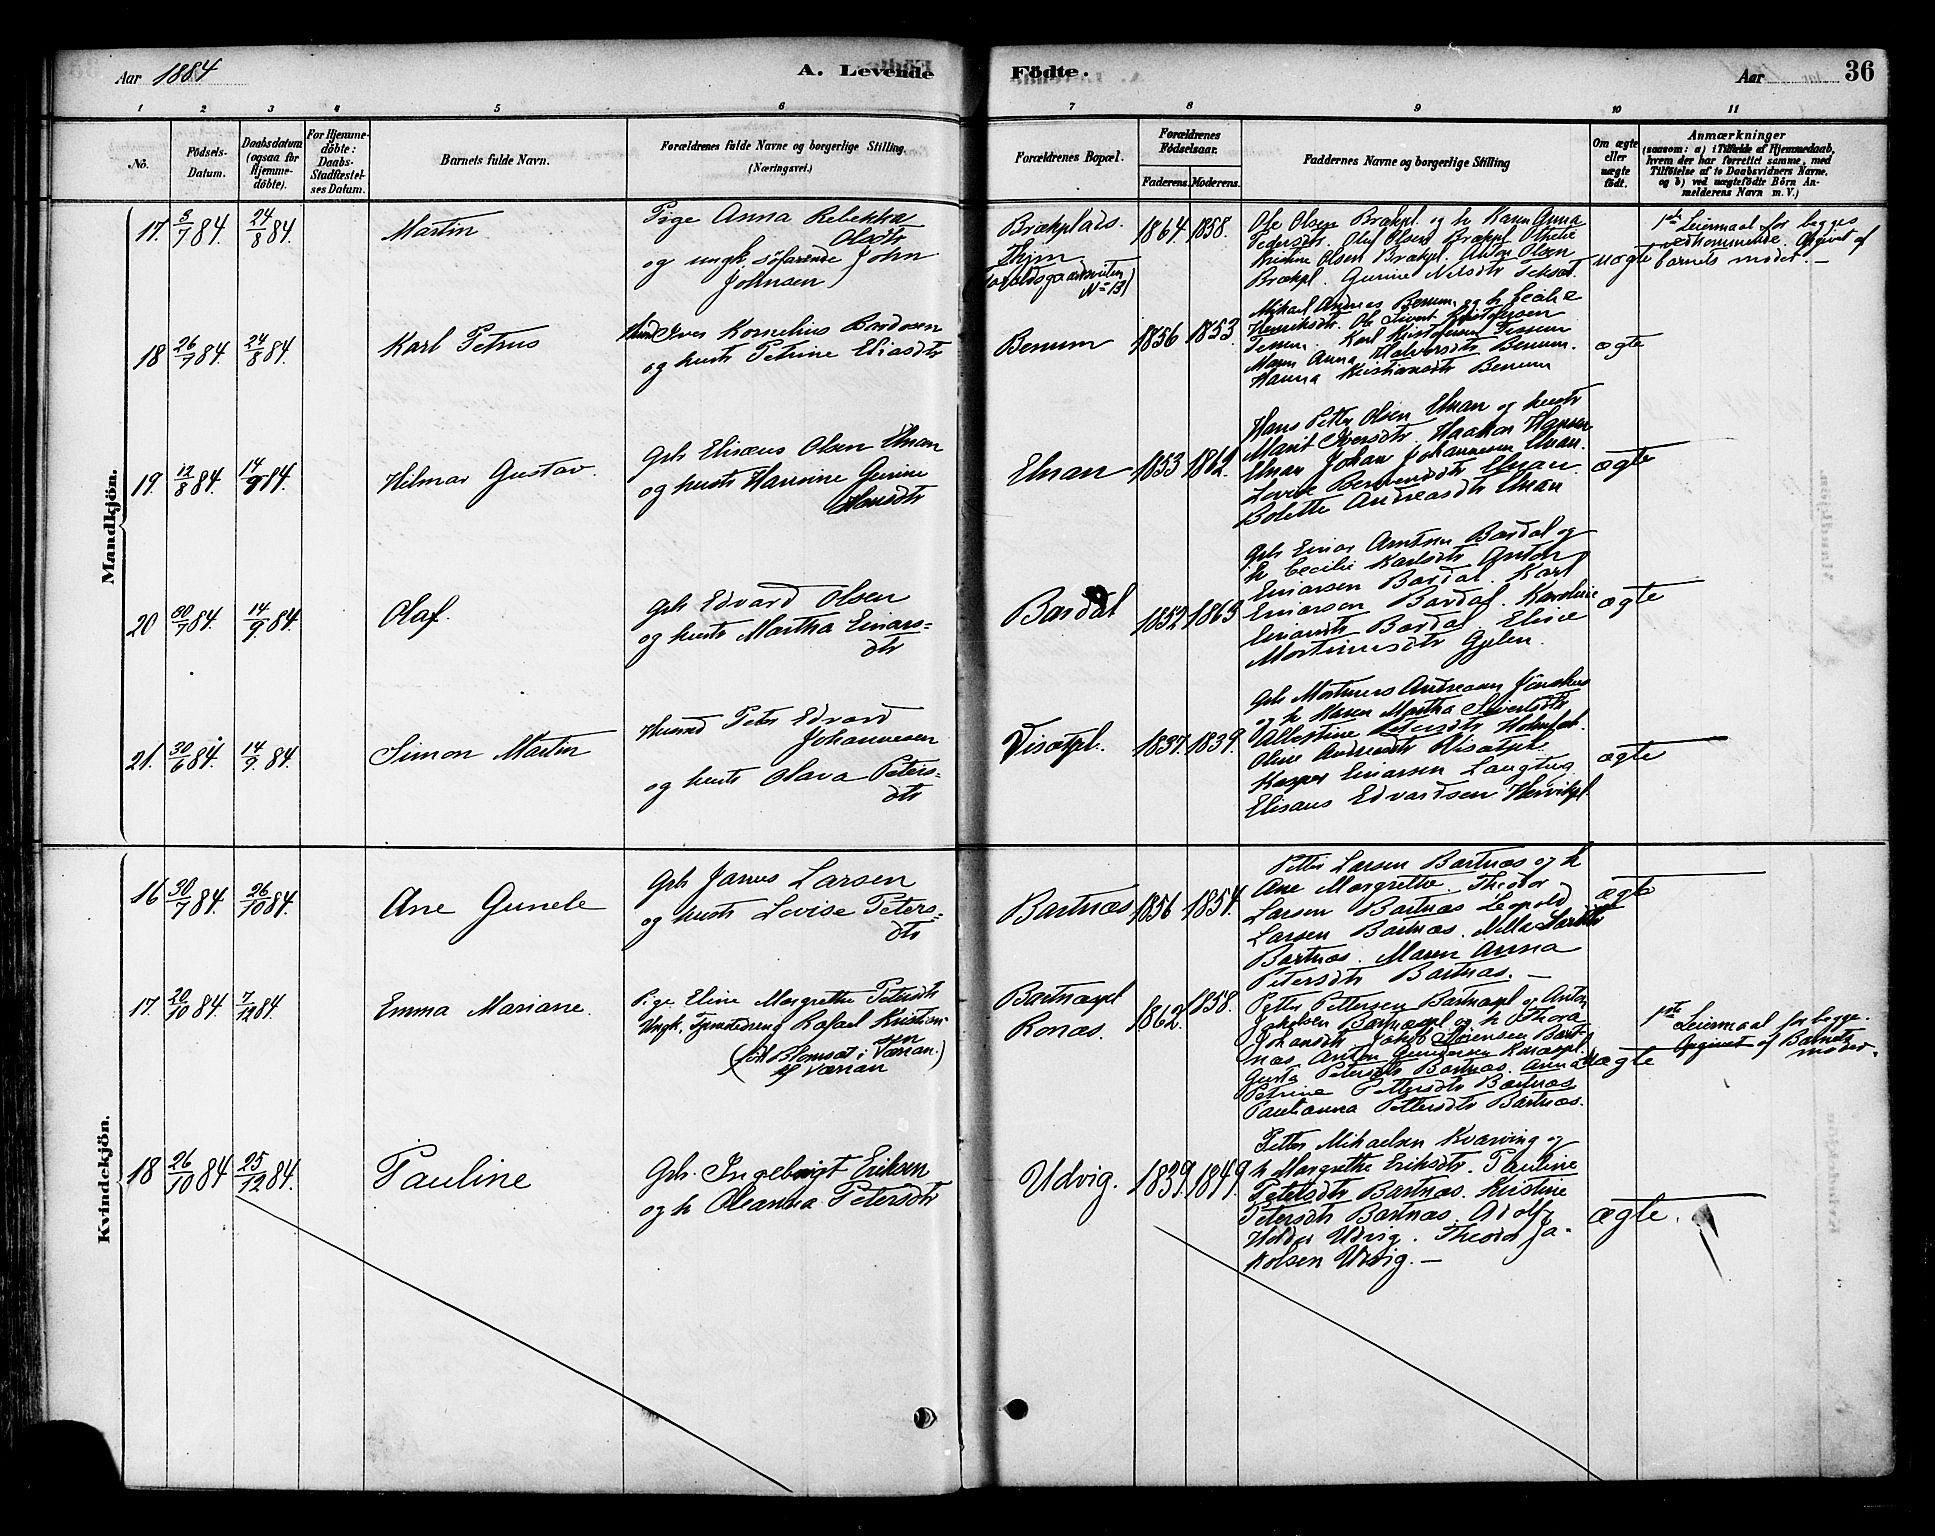 Aar 1884
A. Levende
Födte.
Aar
36
1 2 3 4 5 6 7 8 9 10 11
No.
Födsels-
Datum.
Daabsdatum
(ogsaa for
Hjemme-
döbte).
For Hjemme-
döbte:
Daabs-
Stadfæstel-
ses Datum.
Barnets fulde Navn.
Forældrenes fulde Navne og borgerlige Stilling
(Næringsvei.)
Forældrenes Bopæl.
Forældrenes
Födselsaar.
Faderens. Moderens.
Faddernes Navne og borgerlige Stilling
Om ægte
eller
uægte
födt.
Anmærkninger
(saasom: a) i Tilfælde af Hjemmedaab,
hvem der har forrettet samme, med
Tilföielse af to Daabsvidners Navne,
og b) ved uægtefödte Börn An-
melderens Navn m. V.)
Mandkjön.
17. 3/7 84. 24/8 84.
Martin
Pige Anna Rebekka
Olsdtr
og ungk söfarende John
Johnsen
Brækplads.
1864. 1858.
Ole Olsen Brækpl og h Karen Anna
Pedersdtr. Oluf Olsen Brækpl Othelie
Kristine Olsen Brækpl. Anton Olsen
Brækpl. Gurine Nilsdtr
uægte
1ste Leiermaal for begges
vedkommende. Opgivet af
barnets moder. —
18 26/7 84. 24/8 84.
Karl Petrus
Iver Kornelius Bardosen
og hustr Petrine Eliasdtr
Benum
1856 1853.
Mikael Andreas Benum og h Cecilie
Henriksdtr. Ole Sivert Kristofersen
Tessem. Karl Kristofersen Tessem
Maren Anna Halvorsdtr Benum.
Hanna Kristiansdtr Benum
ægte
19. 12/8 84. 14/9 84.
Hilmar Gustav.
Gb Elisæus Olsen Elnan
og hustr Hansine Gurine
Elnan
1853 1862.
Hans Petter Olsen Elnan og hustr
Marit Iversdtr. Haakon Hansen
Elnan Johan Johannesen Elnan.
Lovise Elnan
Bolette Andreasdtr Elnan
ægte
20 30/7 84. 14/9 84.
Olaf.
Gb Edvard Olsen
og hustr Martha Einars-
dtr
Bardal
1852 1863
Gb Einar Arntsen Bardal og
h Cecilie Karlsdtr Anton
Einarsen Bardal. Karl
Einarsen Bardal. Karoline
Einarsdtr Bardal. Elise
Mortinusdtr Gjelen.
ægte
21. 30/6 84. 14/9. 84.
Simon Martin
Husmd Peter Edvard
Johannesen
og hustr Olava Peters-
dtr
1837. 1839.
Gb Mortinus Andreasen
og h Karen Martha Sivertsdtr
Albertine Petersdtr
Oline Andreasdtr
Kasper Einarsen
Elisæus Edvardsen
ægte
Kvindekjön.
16 30/7 84. 26/10 84.
Ane Gunele
Gb Janus Larsen
og hustr Lovise Peters-
dtr
Bartnæs
1856 1854.
Petter Larsen Bartnæs og h
Ane Margrethe. Theodor
Larsen Bartnæs Leopold
Larsen Bartnæs.
Bartnæs. Maren Anna
Petersdtr Bartnæs. —
ægte
17. 20/10 84. 7/12 84.
Emma Mariane.
Pige Eline Margrethe Petersdtr
Ungk. Rafael Kristian-
sen
af Værran
Bartnæspl
Ronæs.
1862. 1858.
Petter Pettersen Bartnæspl og Anton
Jakobsen Bartnæspl og h Thora
Johansdtr. Jakob Sörensen Bart-
næs. Anton Gundersen
Gusta Petersdtr Bartnæs. Anna
Petrine Pettersdtr Bartnæs
Paulianna Pettersdtr Bartnæs.
uægte
1ste Leiermaal for begge.
Opgivet af Barnets
moder.
18 26/10 84 25/12 84.
Pauline
Gb. Ingebrigt Eriksen
og h Oleanna Petersdtr
Udvig.
1839. 1849.
Petter Mikaelsen Kværving og
h Margrethe Eriksdtr. Pauline
Petersdtr Bartnæs. Kristine
Petersdtr Bartnæs. Adolf
Udvig. Theodor Ja-
kobsen Udvig. —
ægte.